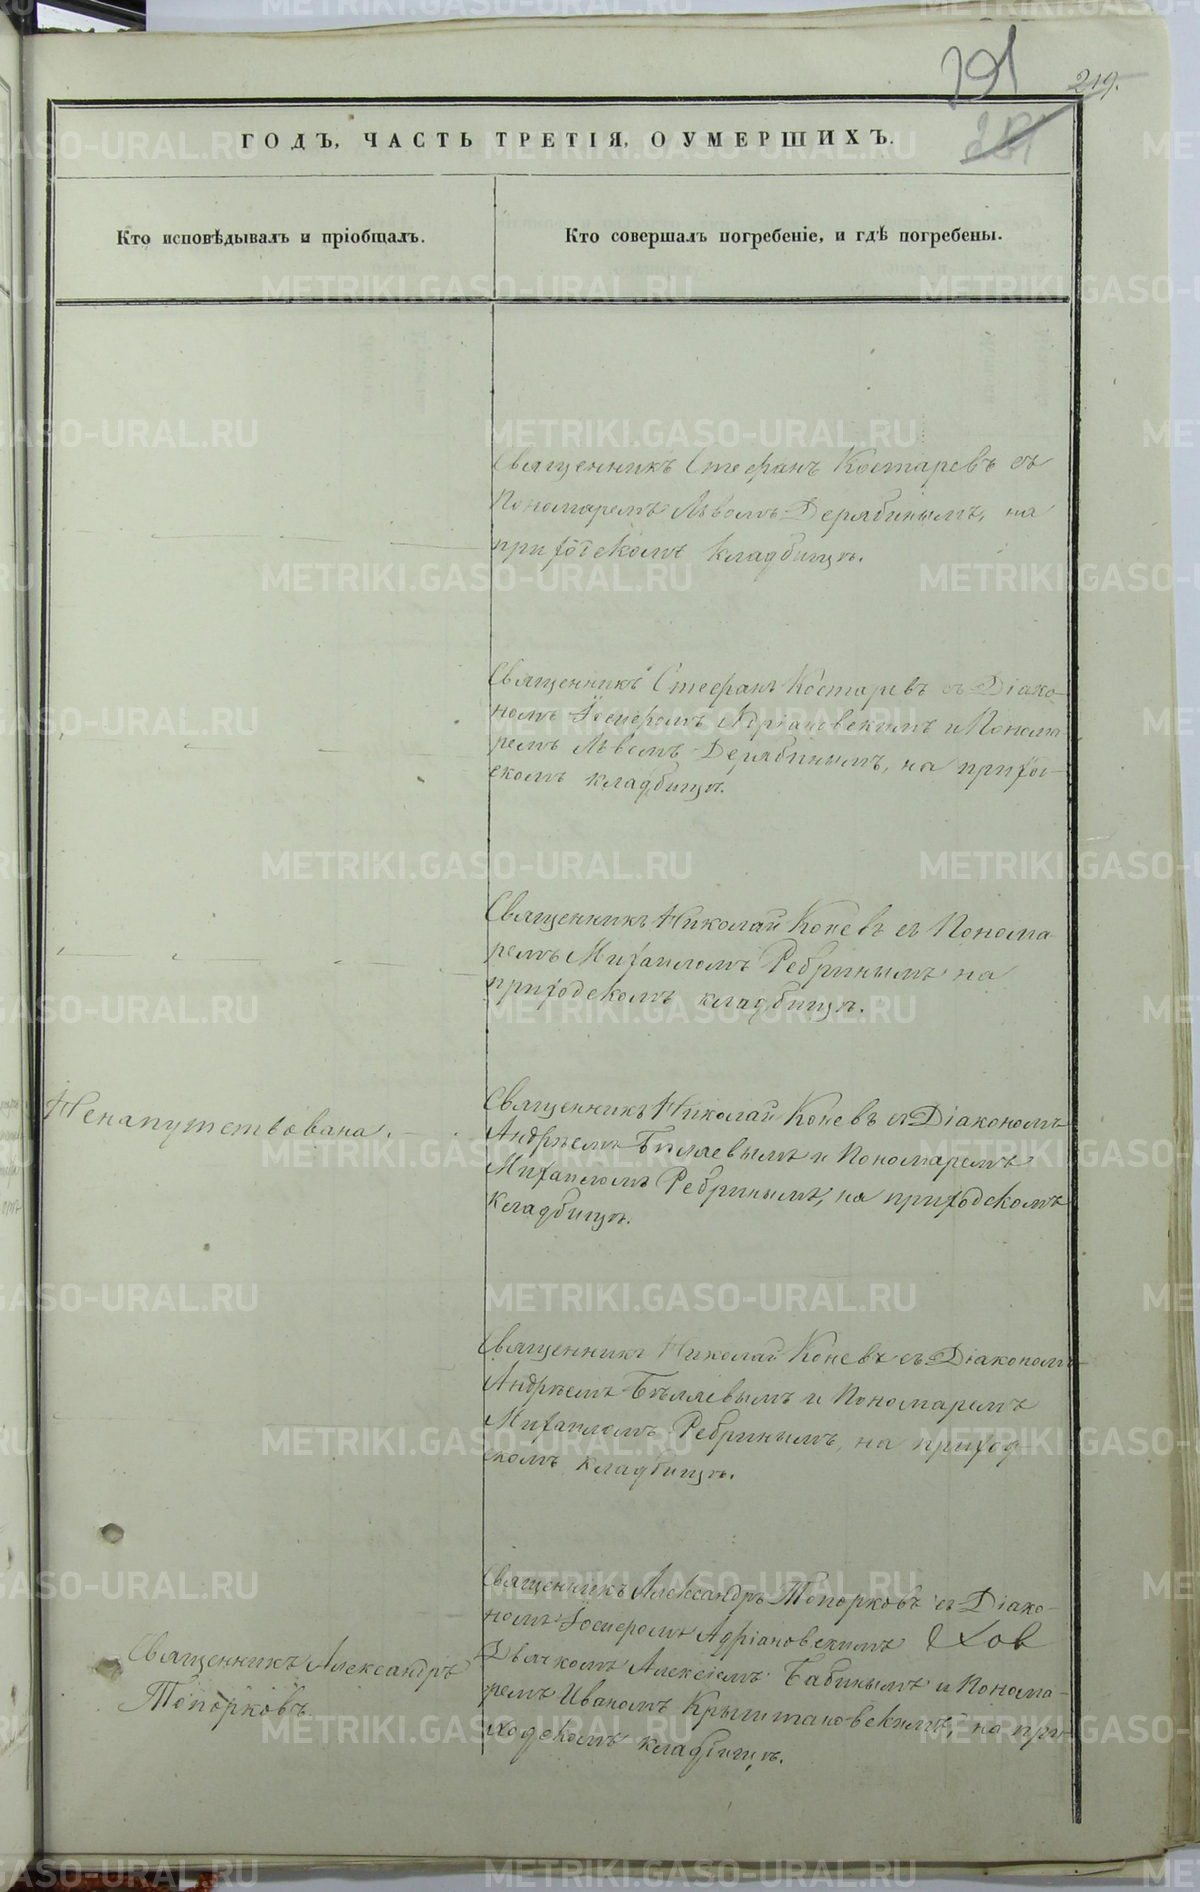 191
219.
ГОДЪ, ЧАСТЬ ТРЕТІЯ, О УМЕРШИХЪ.
Кто исповѣдывалъ и пріобщалъ.
Кто совершалъ погребеніе, и гдѣ погребены.
Священникъ Стефанъ Костаревъ съ
Пономаремъ Львомъ Дерябинымъ, на
приходскомъ кладбищѣ.
Священникъ Стефанъ Костаревъ съ Діако-
номъ Іосифомъ Адріановскимъ и Понома-
ремъ Львомъ Дерябинымъ, на приход-
скомъ кладбищѣ.
Священникъ Николай Коневъ съ Понома
ремъ Михаиломъ Ребринымъ на
приходскомъ кладбищѣ.
Ненапутствована.
Священникъ Николай Коневъ съ Діакономъ
Андрѣемъ Бѣляевымъ и Пономаремъ
Михаиломъ Ребринымъ, на приходскомъ
кладбищѣ.
Священникъ Николай Коневъ съ Діакономъ
Андрѣемъ Бѣляевымъ и Пономаремъ
Михаиломъ Ребринымъ, на приход
скомъ кладбищѣ.
Священникъ Александръ
Топорковъ.
Священникъ Александръ Топорковъ съ Діако-
номъ Іосифомъ Адріановскимъ
Дьячкомъ Алексіемъ Бабинымъ и Понома-
ремъ Иваномъ Крыштановскимъ, на при-
ходскомъ кладбищѣ.
METRIKI.GASO-URAL.RU